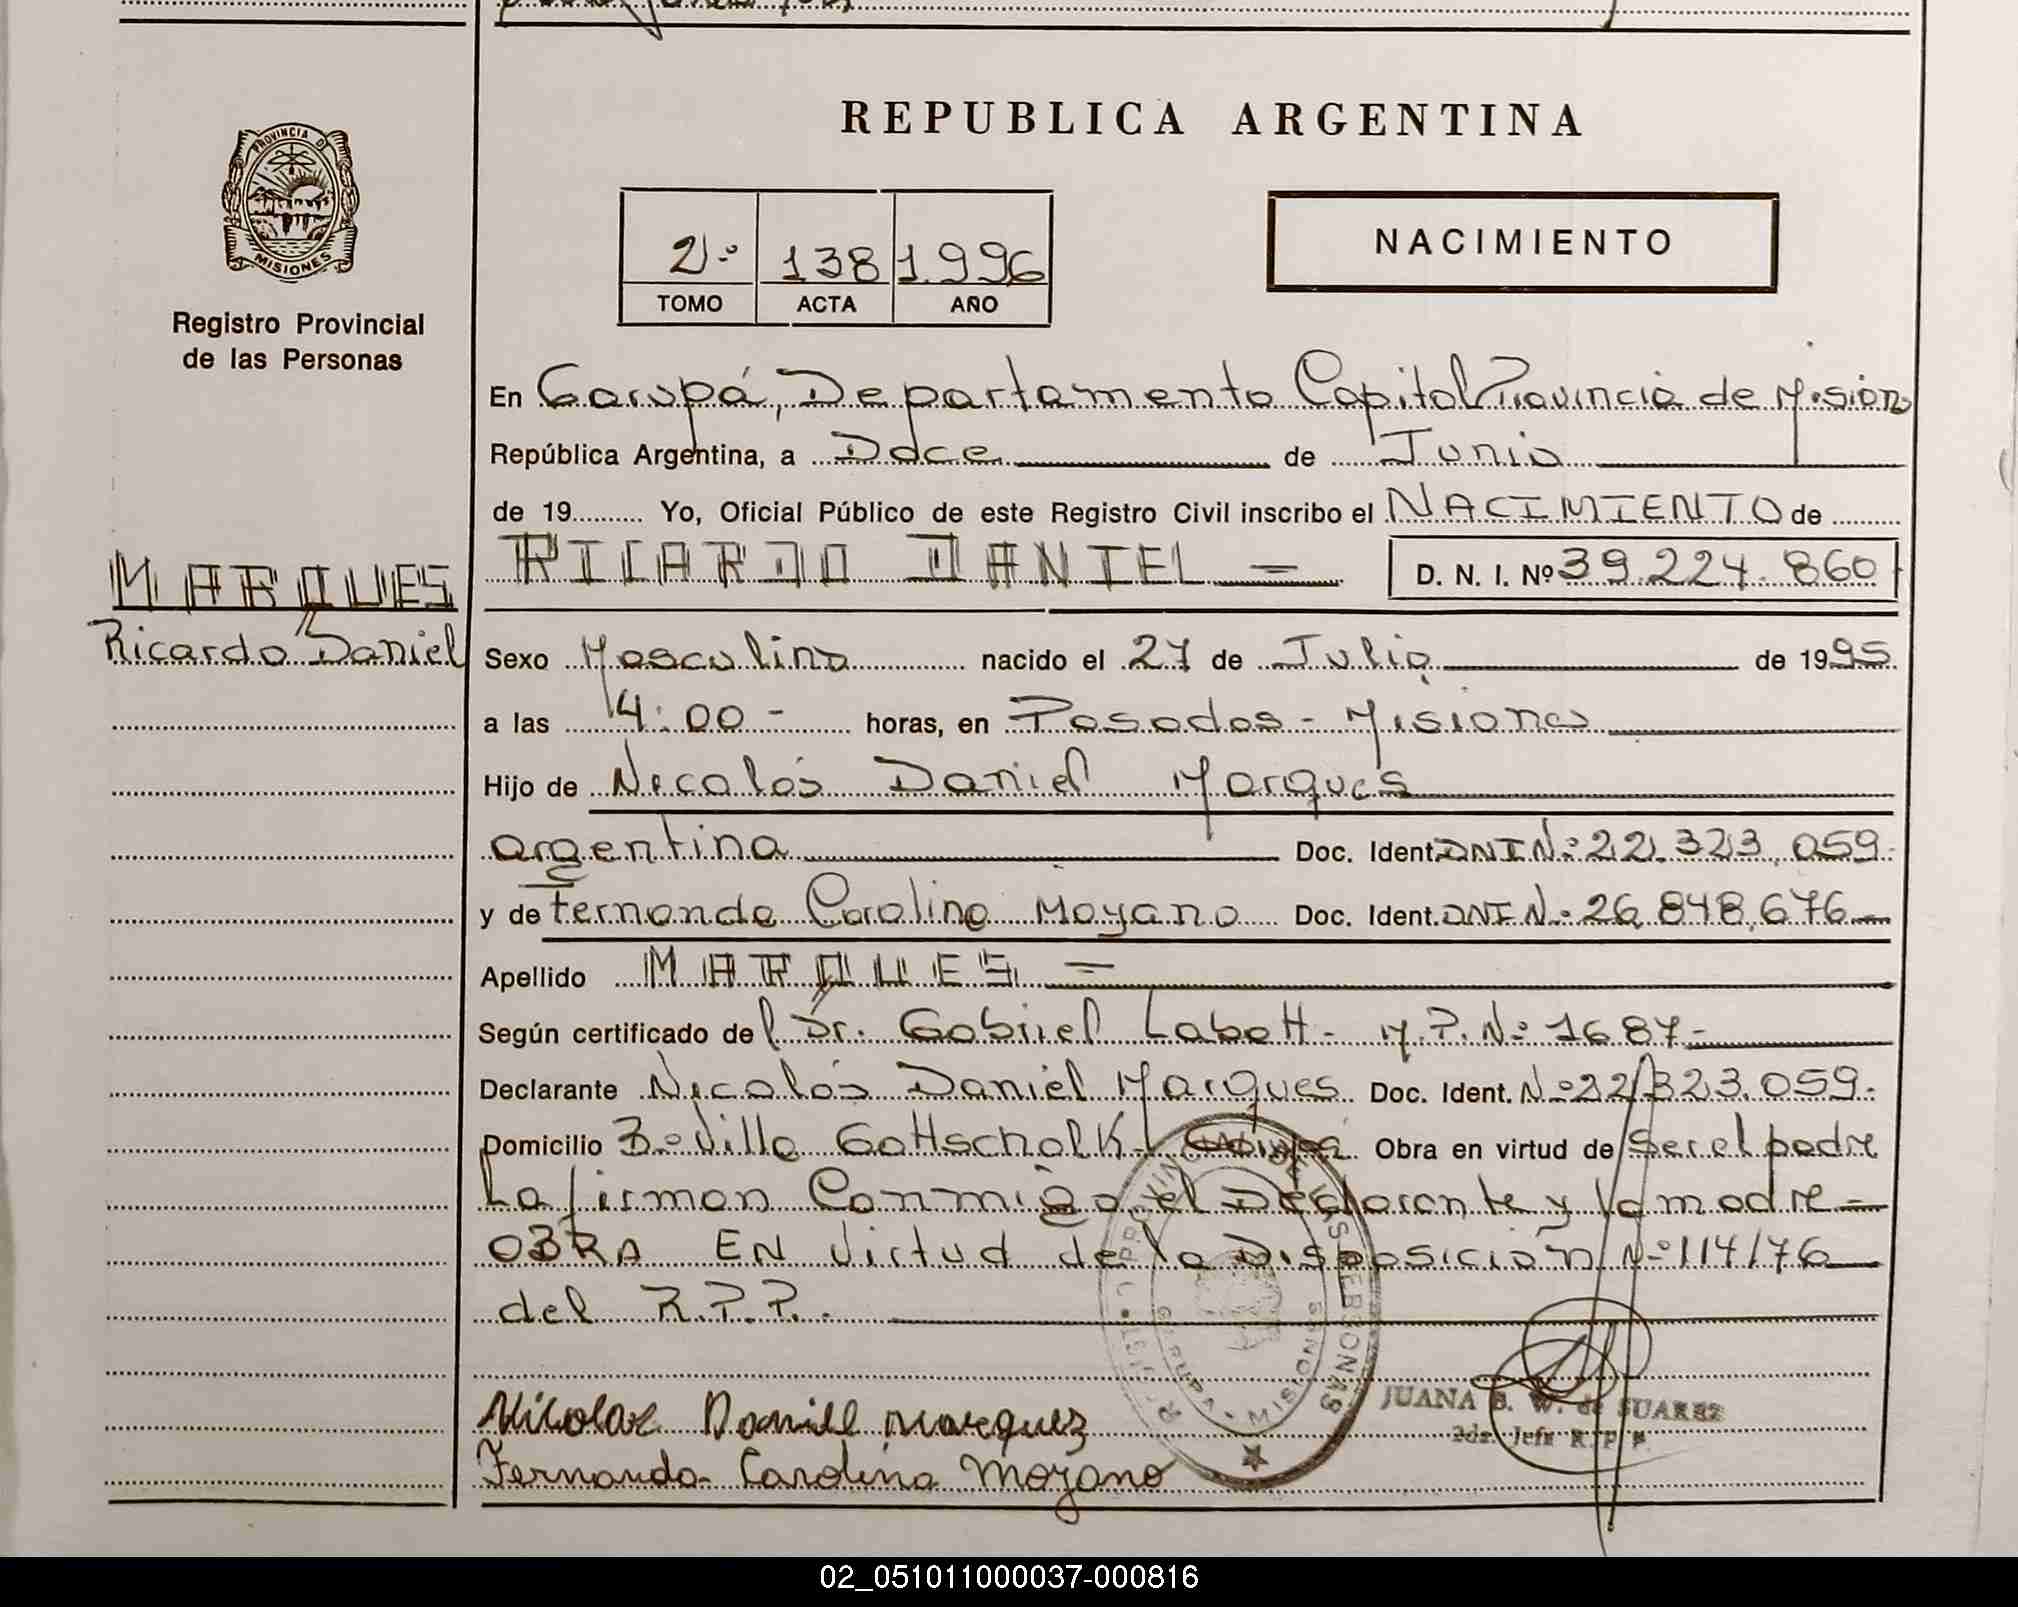 REPUBLICA ARGENTINA
PROVINCIA DE
MISIONES
Registro Provincial
de las Personas
2º 138 1996
TOMO ACTA AÑO
NACIMIENTO
En Garupá, Departamento Capital Provincia de Mision
República Argentina, a Doce de Junio
de 19 Yo, Oficial Público de este Registro Civil inscribo el NACIMIENTO de
RICARDO DANIEL = D. N. I. Nº 39.224.860
MARQUES
Ricardo Daniel
Sexo Masculino nacido el 27 de Julio de 1995
a las 14:00- horas, en Posadas - Misiones
Hijo de Nicolás Daniel Marques
argentina Doc. Ident. DNI Nº 22.323.059-
y de Fernanda Carolina Moyano Doc. Ident. DNI Nº 26.848.676-
Apellido MARQUES =
Según certificado del Dr. Gabriel Labott - M.P. Nº 1687-
Declarante Nicolás Daniel Marques Doc. Ident. Nº 22.323.059-
Domicilio Bº Villa Gottschalk - Obra en virtud de Ser el padre
La firman Conmigo el Declarante y la madre -
OBRA EN Virtud de la Disposición Nº 114/76
del R.P.P.
Nicolas Daniel Marquez
Fernanda Carolina Moyano
GARUPA - MISIONES
JUANA S. W. de SUAREZ
2da. Jefe R. P. P.
02_051011000037-000816